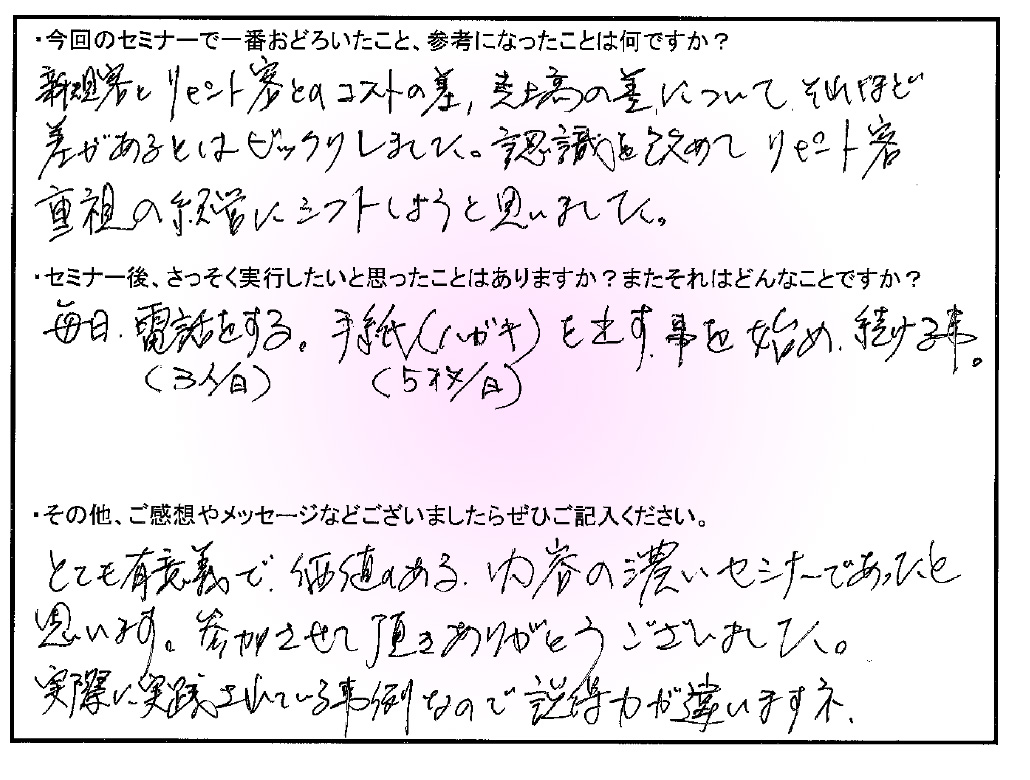 ・今回のセミナーで一番おどろいたこと、参考になったことは何ですか？
新規客とリピート客とのコストの差、売上高の差について、それほど
差があるとはビックリしました。認識を改めてリピート客
重視の経営にシフトしようと思いました。
・セミナー後、さっそく実行したいと思ったことはありますか？またそれはどんなことですか？
毎日、電話をする。手紙（ハガキ）を出す、事を始め、続ける事。
（3人/日）　（5枚/日）
・その他、ご感想やメッセージなどございましたらぜひご記入ください。
とても有意義で、価値のある、内容の濃いセミナーであったと
思います。参加させて頂きありがとうございました。
実際に実践されている事例なので説得力が違いますネ、